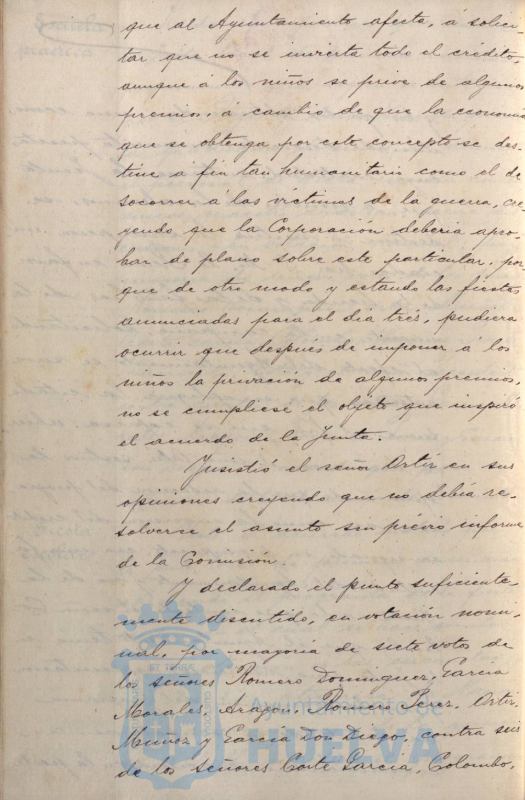 que al Ayuntamiento afecta, á solici-
tar que no se invierta todo el crédito,
aunque á los niños se prive de algunos
premios, á cambio de que la economia
que se obtenga por este concepto se des-
tine á fin tan humanitario como el de
socorrer á las víctimas de la guerra, cre-
yendo que la Corporación deberia apro-
bar de plano sobre este particular, por
que de otro modo y estando las fiestas
anunciadas para el dia tres, pudiera
ocurrir que después de imponer á los
niños la privación de algunos premios,
no se cumpliese el objeto que inspiró
el acuerdo de la Junta.
Insistió el señor Ortiz en sus
opiniones creyendo que no debía re-
solverse el asunto sin prévio informe
de la Comisión.
Y declarado el punto suficiente-
mente discutido, en votación nomi-
nal, por mayoria de siete votos de
los señores Romero Dominguez, García
Morales, Aragon, Romero Perez, Ortiz,
Muñoz y García Don Diego, contra seis
de los señores Corte García, Colombo,
Ayuntamiento de
HUELVA